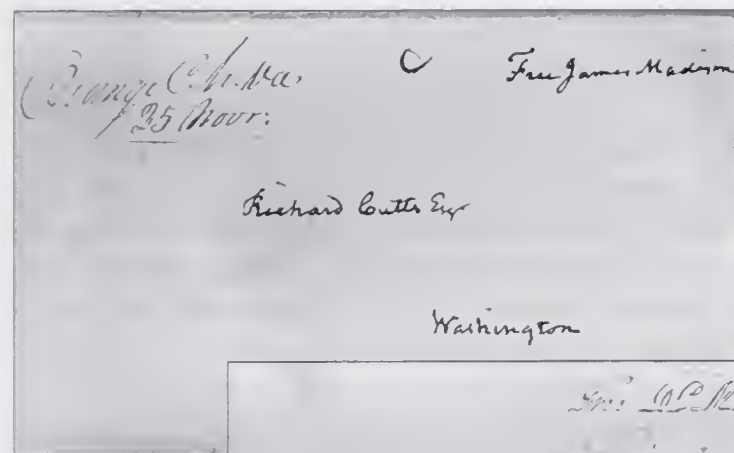 Orange C.h. Va.
25 Novr:
Free James Madison
Richard Cutts Esqr
Washington